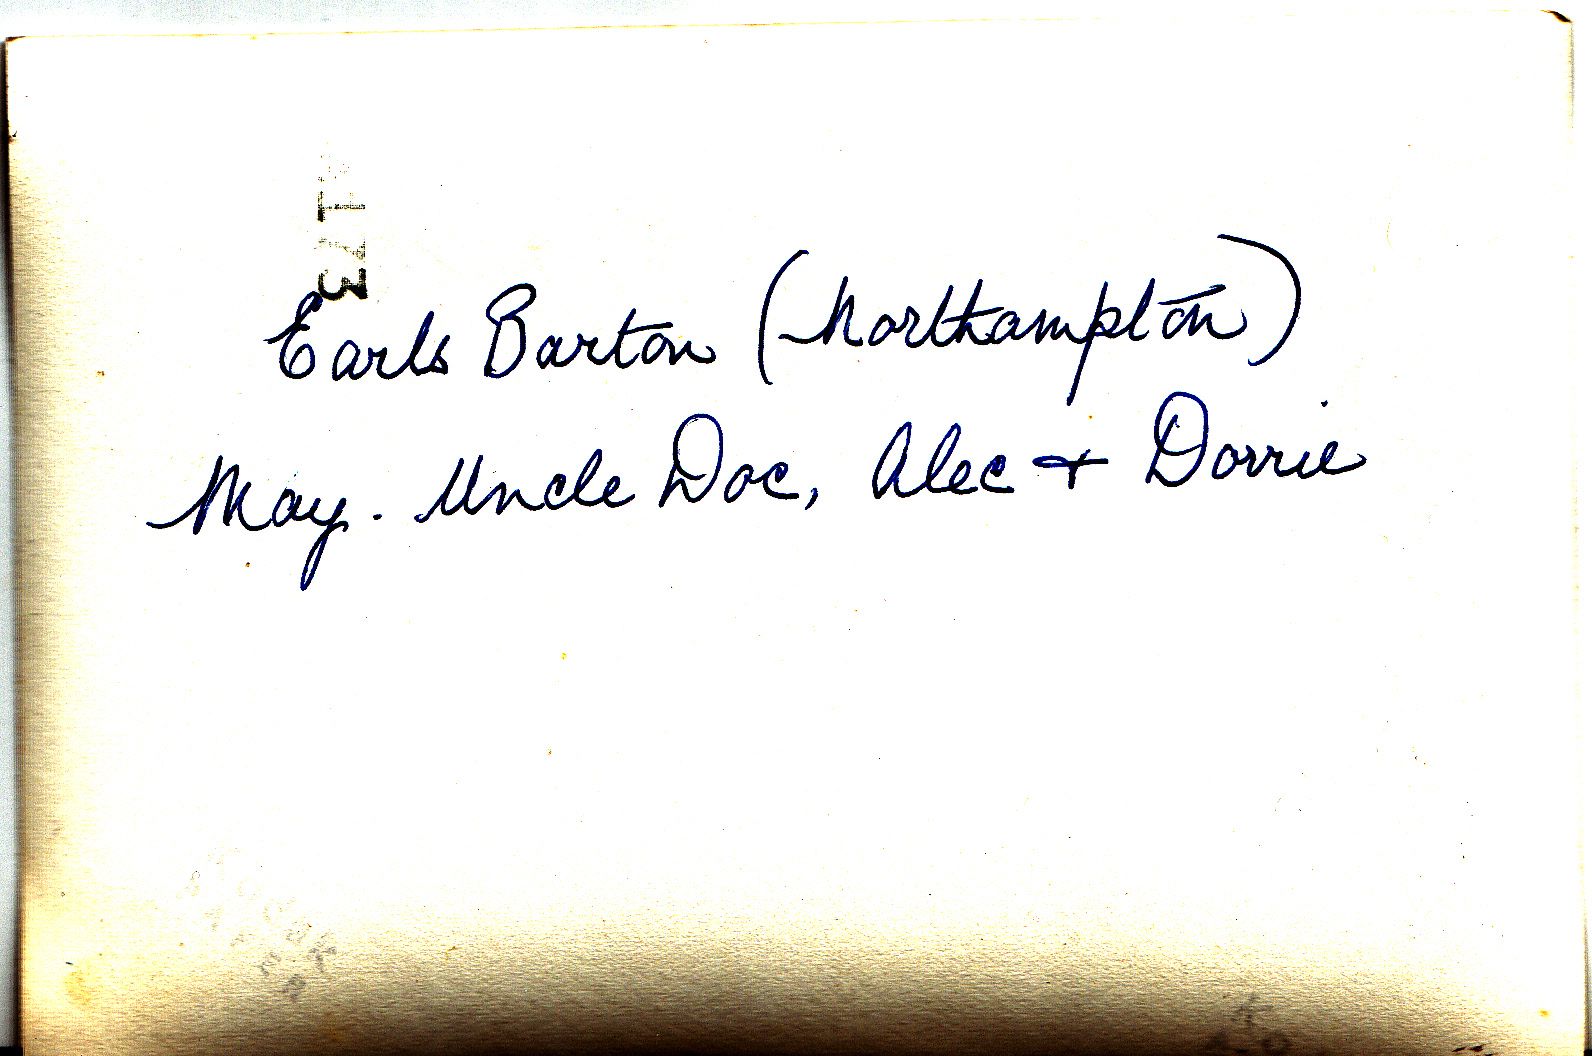 173
Earls Barton (Northampton)
May. Uncle Doc, Alec + Dorrie